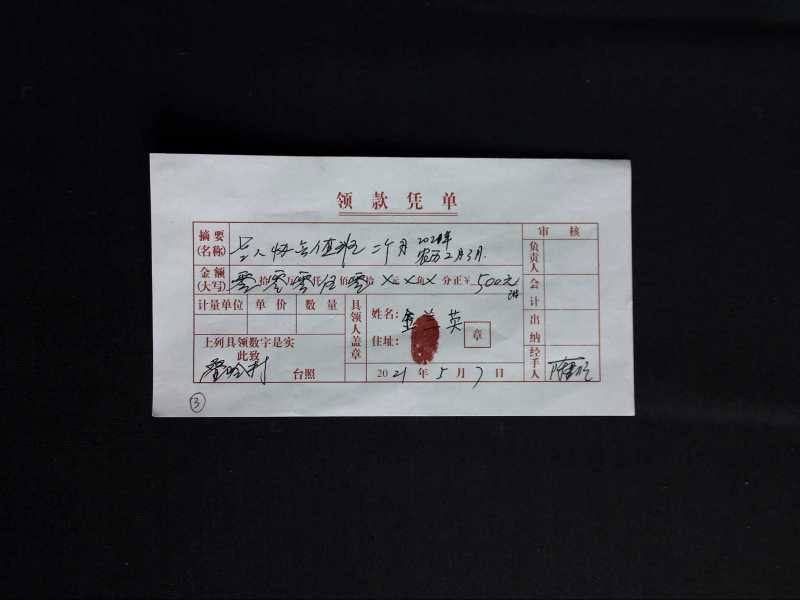 领款凭单
摘要(名称) 值班二个月 2021年农历2月3月.
审核
负责人
金额(大写) 零拾零万零仟伍佰零拾×元×角×分正¥500元
会计
计量单位 单价 数量
具领人盖章
姓名: 金兰英
住址:
章
出纳
上列具领数字是实
此致
台照
2021年5月7日
经手人
③